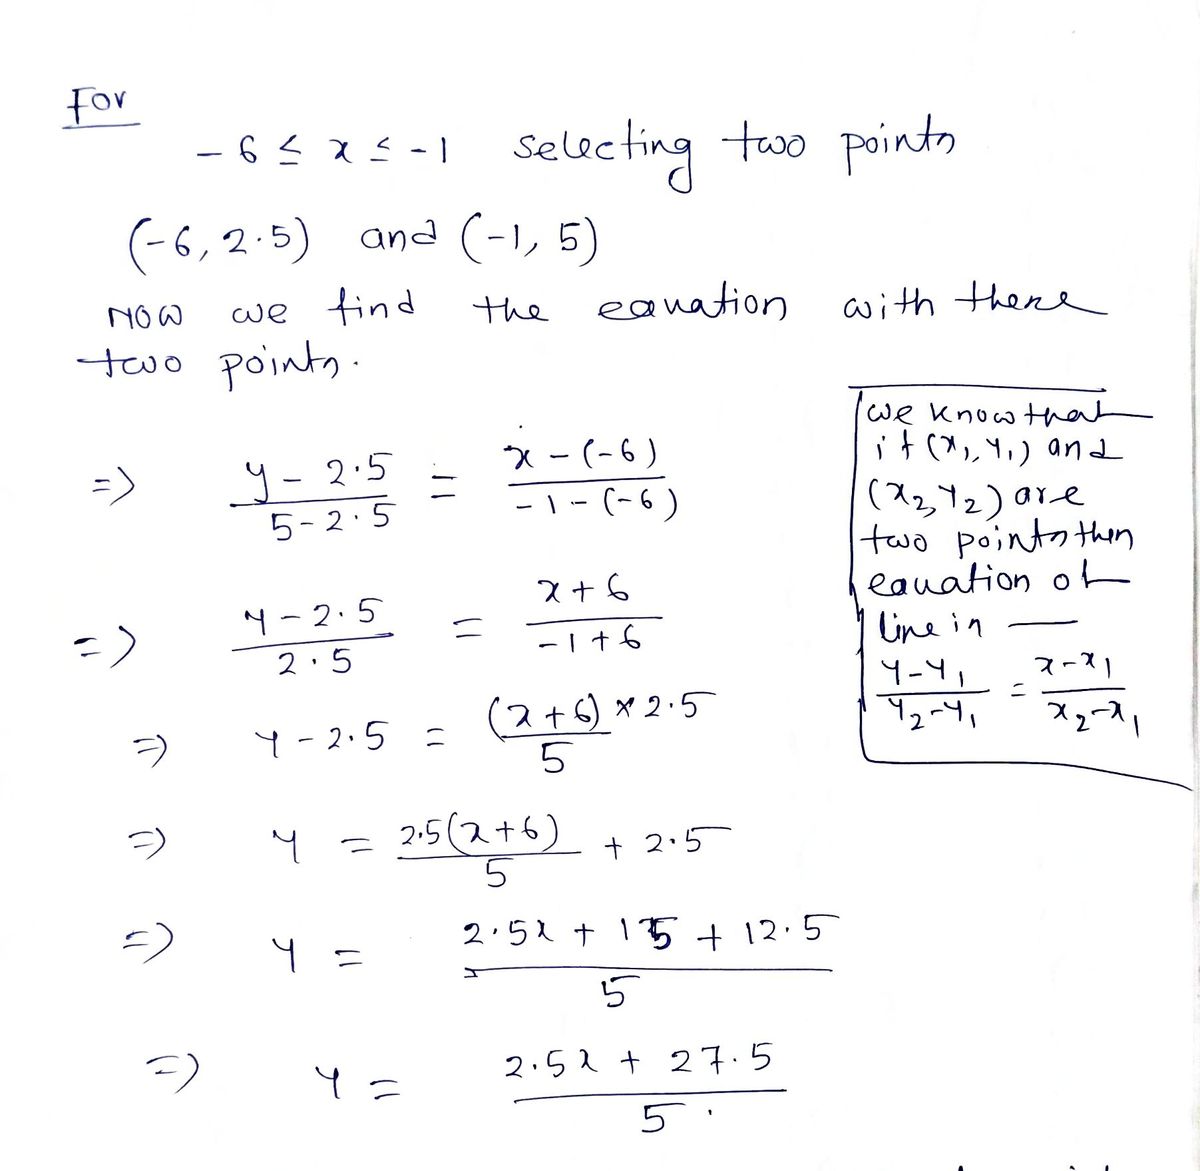 For
-6 ≤ x ≤ -1 selecting two points
(-6, 2.5) and (-1, 5)
NOW we find the equation with these
two points.
=> (y - 2.5)/(5 - 2.5) = (x - (-6))/(-1 - (-6))
=> (y - 2.5)/(2.5) = (x + 6)/(-1 + 6)
=> y - 2.5 = ((x + 6) × 2.5)/5
=> y = (2.5(x + 6))/5 + 2.5
=> y = (2.5x + 15 + 12.5)/5
=> y = (2.5x + 27.5)/5.
we know that
if (x1, y1) and
(x2, y2) are
two points then
equation of
line is —
(y - y1)/(y2 - y1) = (x - x1)/(x2 - x1)